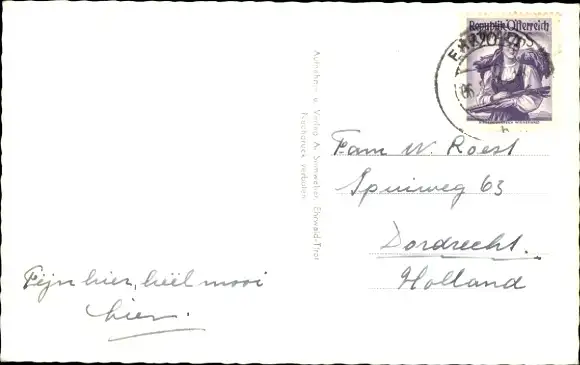 Republik Österreich
06.
Aufnahme u. Verlag A. Somweber, Ehrwald-Tirol
Nachdruck verboten
Fam W. Roest
Spuiweg 63
Dordrecht.
Holland
Fijn hier, heel mooi
hier.